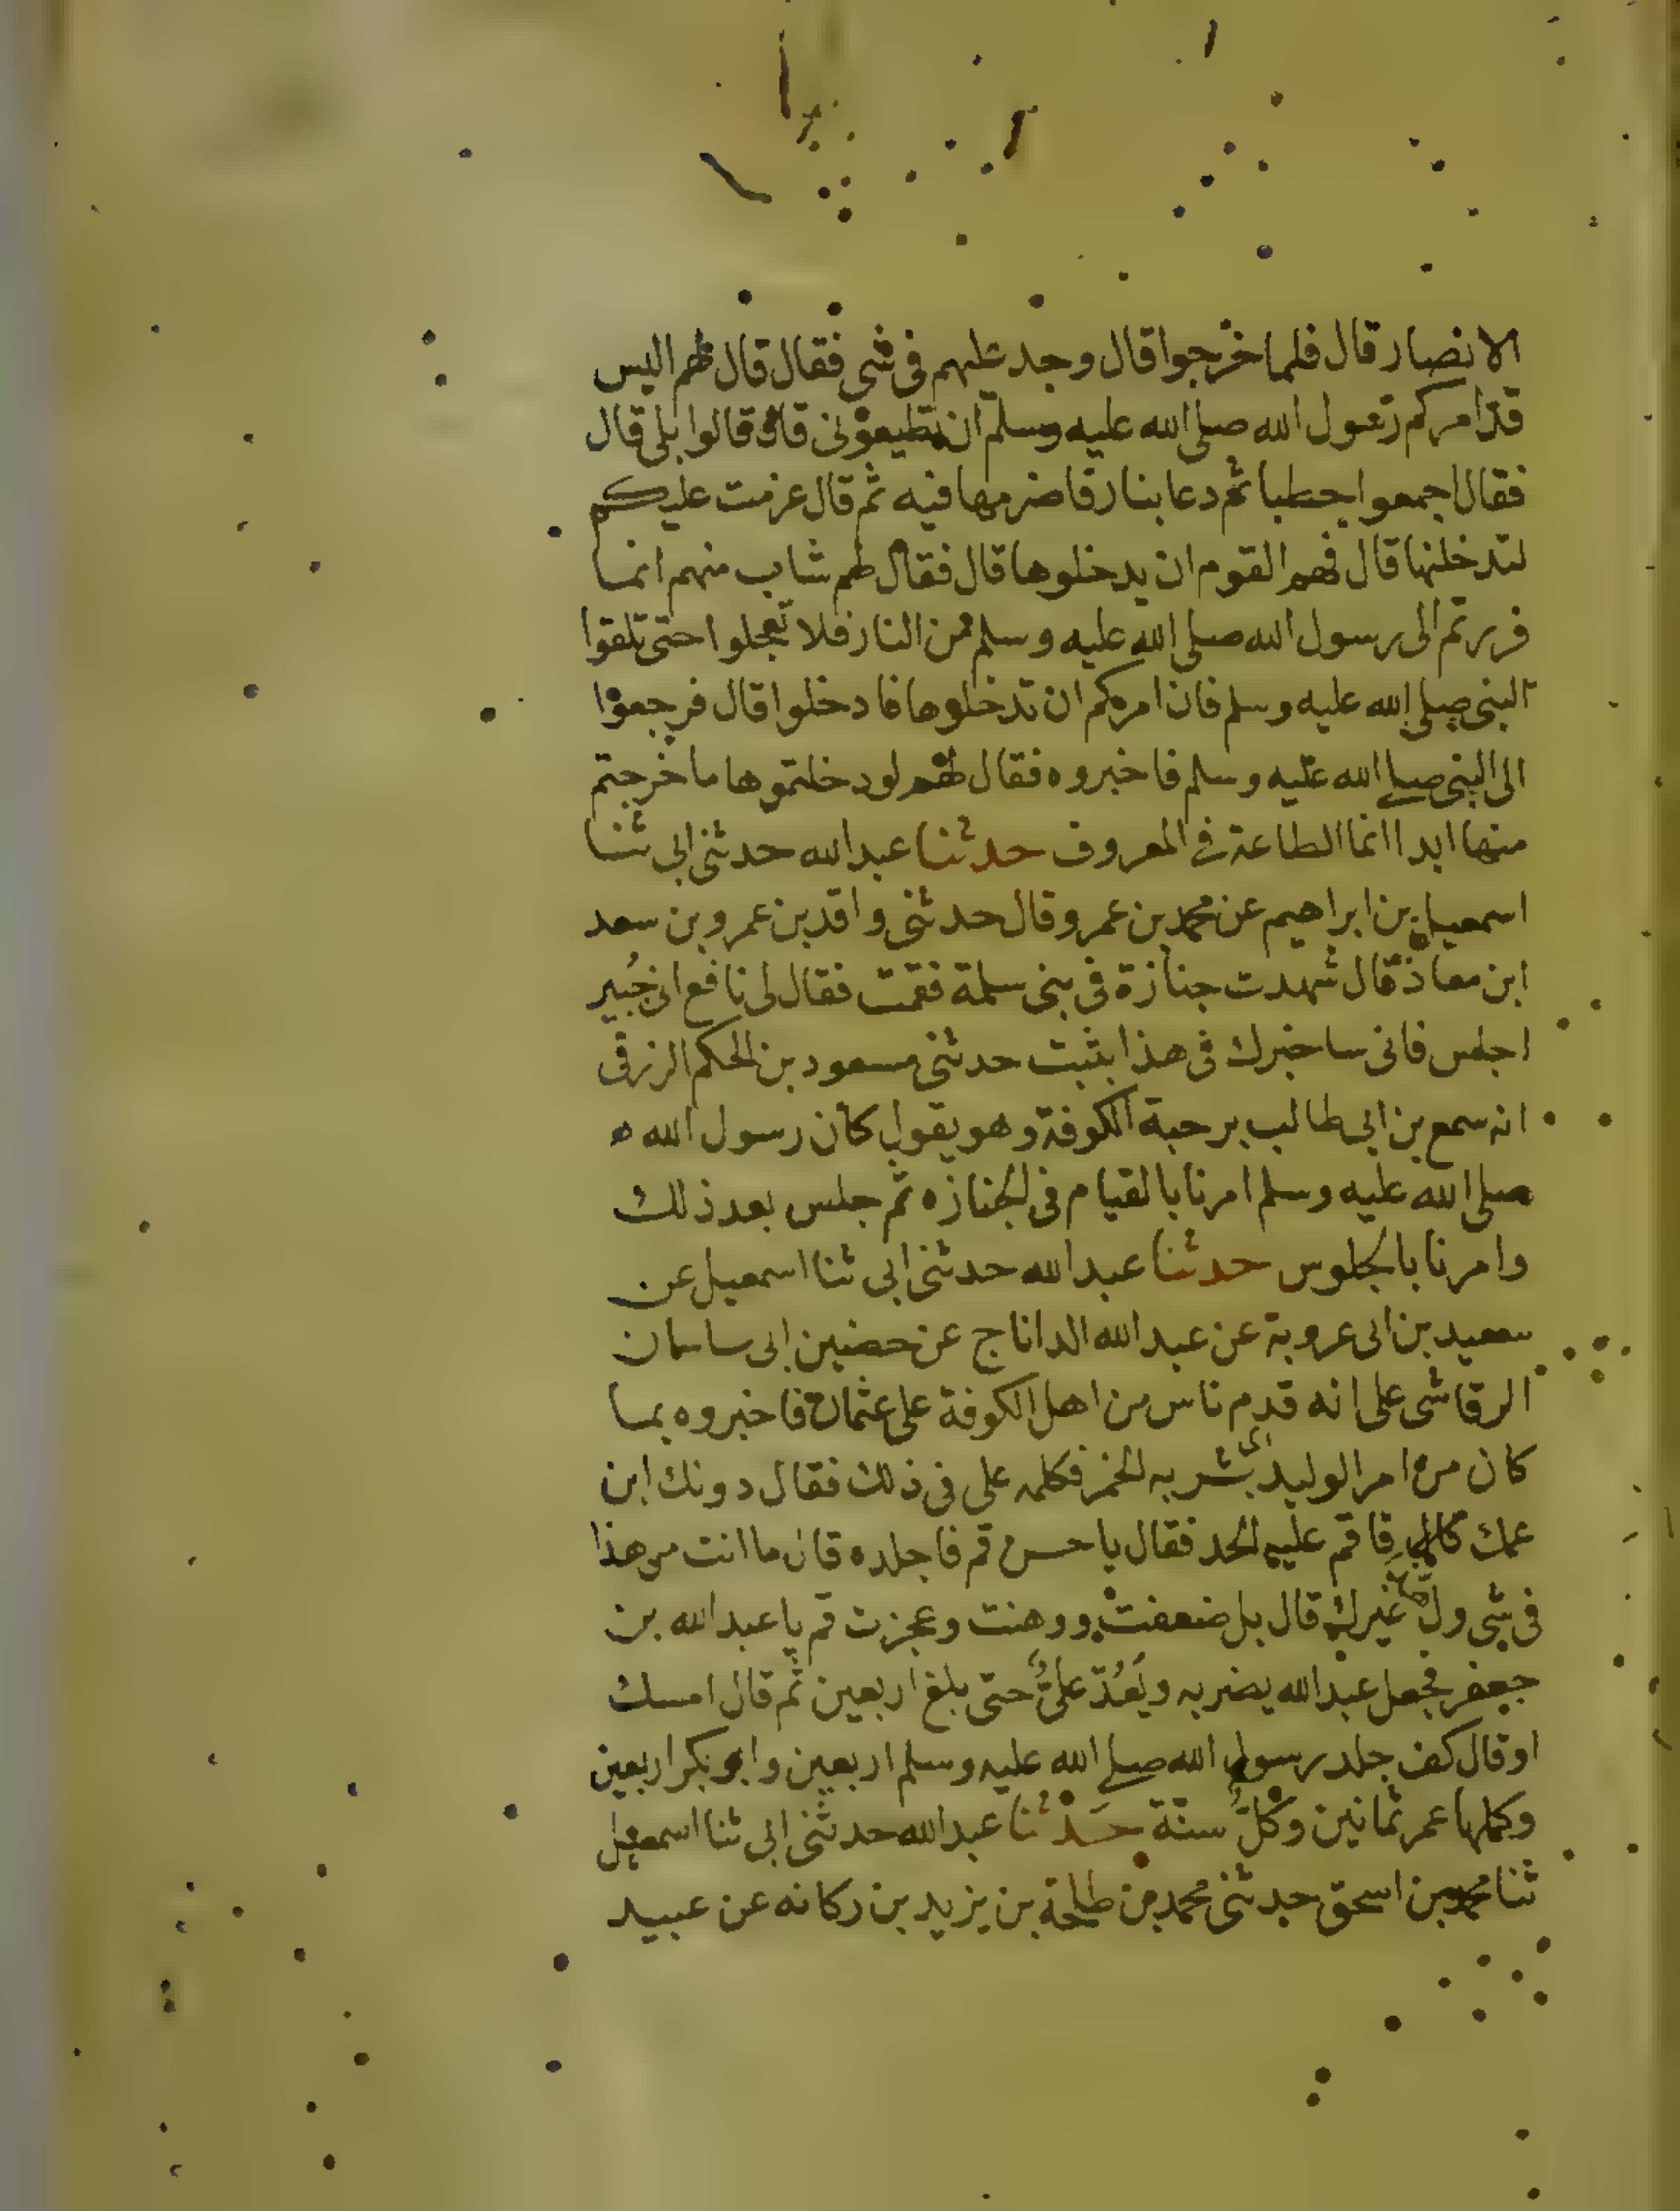 الانصار قال فلما خرجوا قال وجد عليهم فى شى فقال قال لهم اليس
قد امركم رسول الله صلى الله عليه وسلم ان تطيعونى قال قالوا بلى قال
فقال اجمعوا حطبا ثم دعا بنار فاضرمها فيه ثم قال عزمت عليكم
لتدخلنها قال فهم القوم ان يدخلوها قال فقال لهم شاب منهم انما
فررتم الى رسول الله صلى الله عليه وسلم من النار فلا تعجلوا حتى تلقوا
النبى صلى الله عليه وسلم فان امركم ان تدخلوها فادخلوا قال فرجعوا
الى النبى صلى الله عليه وسلم فاخبروه فقال لهم لو دخلتموها ما خرجتم
منها ابدا انما الطاعة فى المعروف حدثنا عبد الله حدثنى ابى ثنا
اسمعيل بن ابراهيم عن محمد بن عمرو قال حدثنى واقد بن عمرو بن سعد
ابن معاذ قال شهدت جنازة فى بنى سلمة فقمت فقال لى نافع ابن جُبير
اجلس فانى ساخبرك فى هذا بثبت حدثنى مسعود بن الحكم الزرقى
انه سمع بن ابى طالب برحبة الكوفة وهو يقول كان رسول الله
صلى الله عليه وسلم امرنا بالقيام فى الجنازه ثم جلس بعد ذلك
وامرنا بالجلوس حدثنا عبد الله حدثنى ابى ثنا اسمعيل عن
سعيد بن ابى عروبة عن عبد الله الداناج عن حضين ابى ساسان
الرقاشى على انه قدم ناس من اهل الكوفة على عثمان فاخبروه بما
كان من امر الوليد اى بشربه الخمر فكلمه على فى ذلك فقال دونك ابن
عمك فاقم عليه الحد فقال يا حسن قم فاجلده قال ما انت من هذا
فى شى ول غيرك قال بل ضعفت ووهنت وعجزت قم يا عبد الله بن
جعفر فجعل عبد الله يضربه ويَعُدّ علىٌّ حتى بلغ اربعين ثم قال امسك
او قال كف جلد رسول الله صلى الله عليه وسلم اربعين وابو بكر اربعين
وكملها عمر ثمانين وكلٌّ سنّة حدثنا عبد الله حدثنى ابى ثنا اسمعيل
ثنا محمد بن اسحق حدثنى محمد بن طلحة بن يزيد بن ركانه عن عبيد